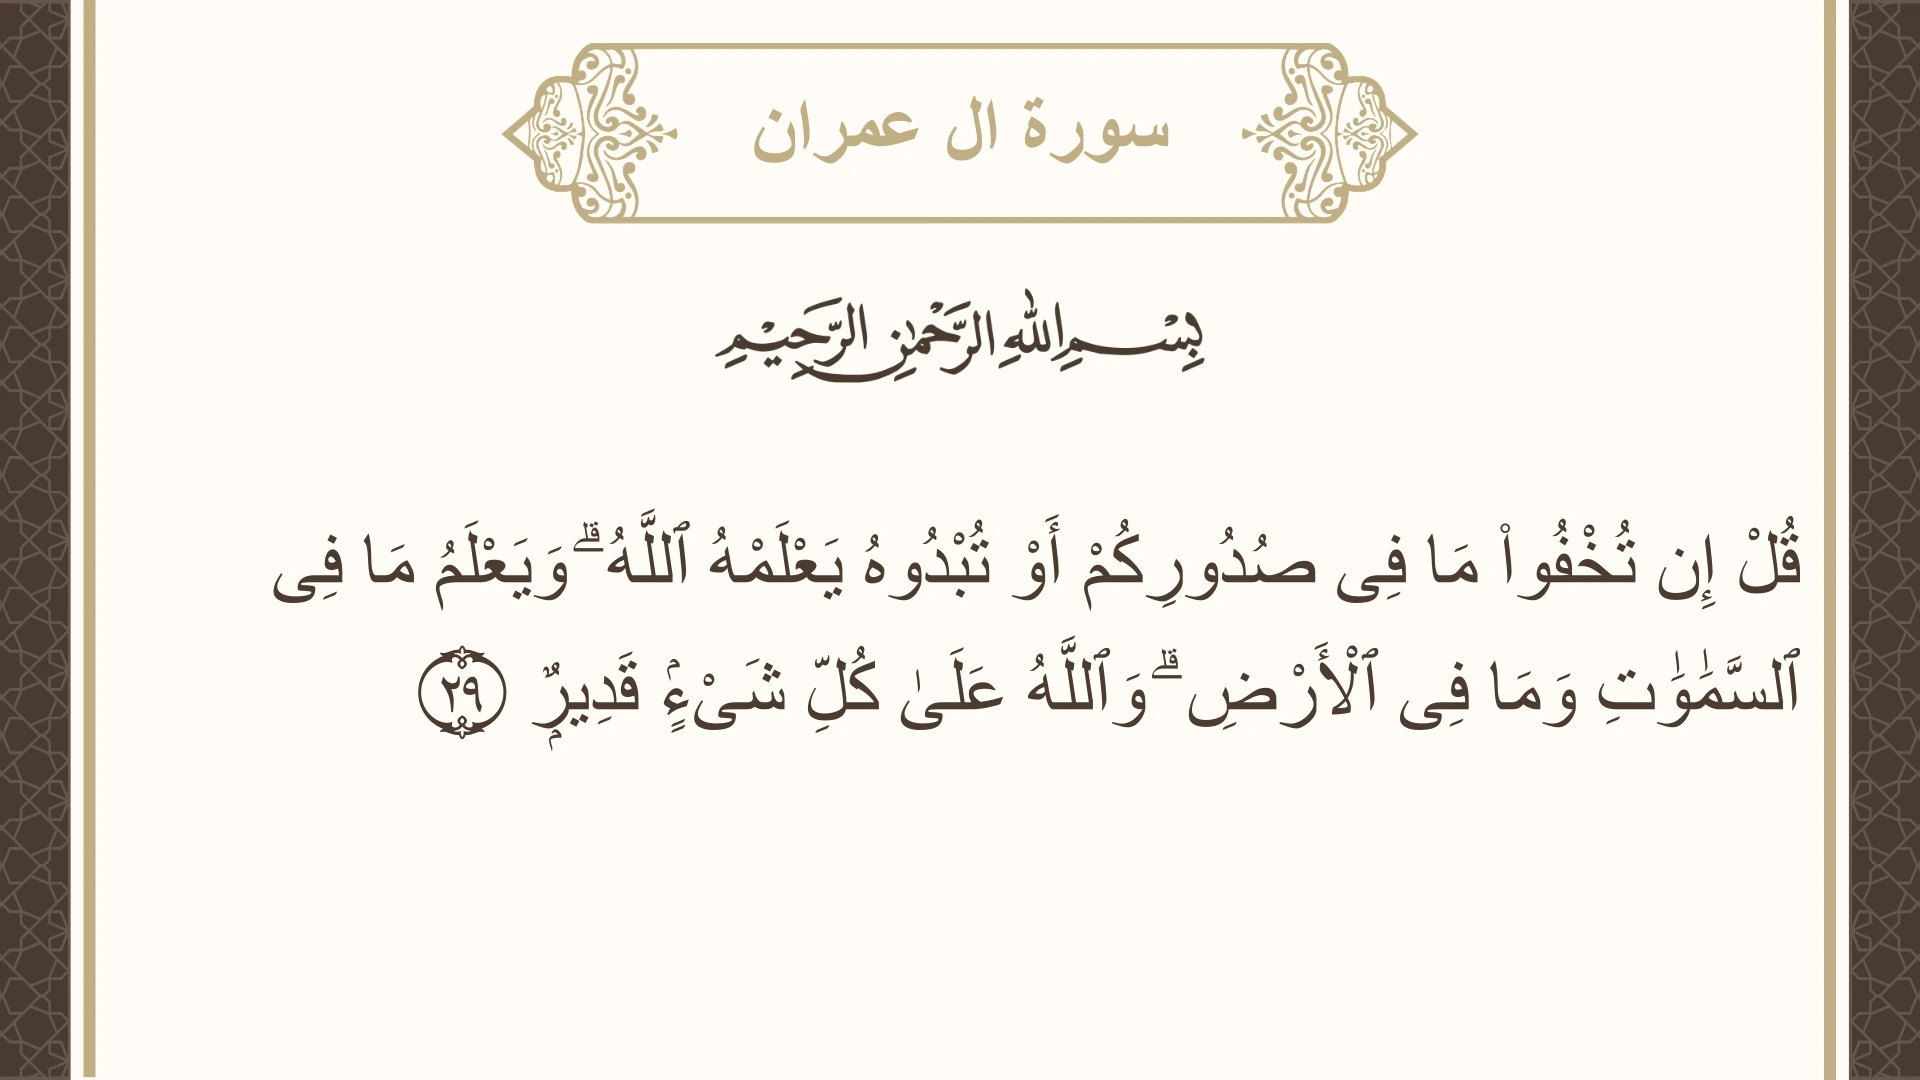 سورة ال عمران
بِسْمِ اللهِ الرَّحْمٰنِ الرَّحِيْمِ
قُلْ إِن تُخْفُوا۟ مَا فِى صُدُورِكُمْ أَوْ تُبْدُوهُ يَعْلَمْهُ ٱللَّهُ ۗ وَيَعْلَمُ مَا فِى
ٱلسَّمَٰوَٰتِ وَمَا فِى ٱلْأَرْضِ ۗ وَٱللَّهُ عَلَىٰ كُلِّ شَىْءٍۢ قَدِيرٌۭ ٢٩